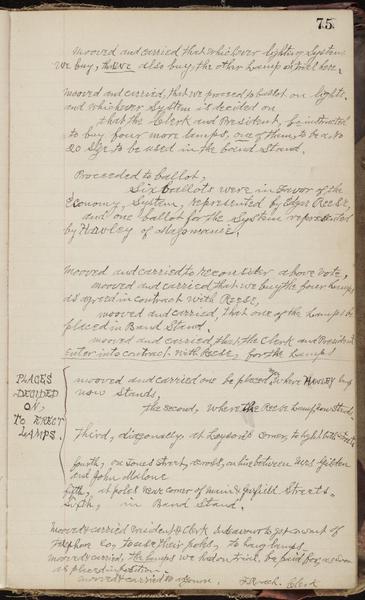 75
mooved and carried that whichever lighting System
we buy, that we also buy, the other Lamp on trial here.
mooved and carried, that we proceed to ballot on lights.
and whichever System is decided on
that the Clerk and President, be instructed
to buy four more lamps, one of them to be a No
20 Style to be used in the band Stand.
Proceeded to ballot,
Six ballots were in Favor of the
Economy, System, represented by Edgar Reese,
and one ballot for the System represented
by Hawley of
mooved and carried to reconsider above vote,
mooved and carried that we buy the four Lamps
as agreed in contract with Reese,
mooved and carried, that one of the Lamps be
placed in Band Stand.
mooved and carried that the Clerk and President
enter into contract with Reese, for the Lamps
PLACES
DECIDED
ON,
TO ERECT
LAMPS.
mooved and carried one be placed, where HAWLEY lamp
now Stands,
The second, where the Reese Lamp now Stands.
Third, diagonally at corner, to light both
fourth, on Jones Street, across, on line between Mrs
and John Malone
fifth, at poles near corner of main & Garfield Streets.
Sixth, in Band Stand.
mooved & carried President & Clerk endeavour to get consent of
Telephone Co, to use their poles, to hang lamps
mooved & carried, the lamps we had on trial, be paid for, as soon
as placed in position.
mooved & carried to adjourn. Clerk